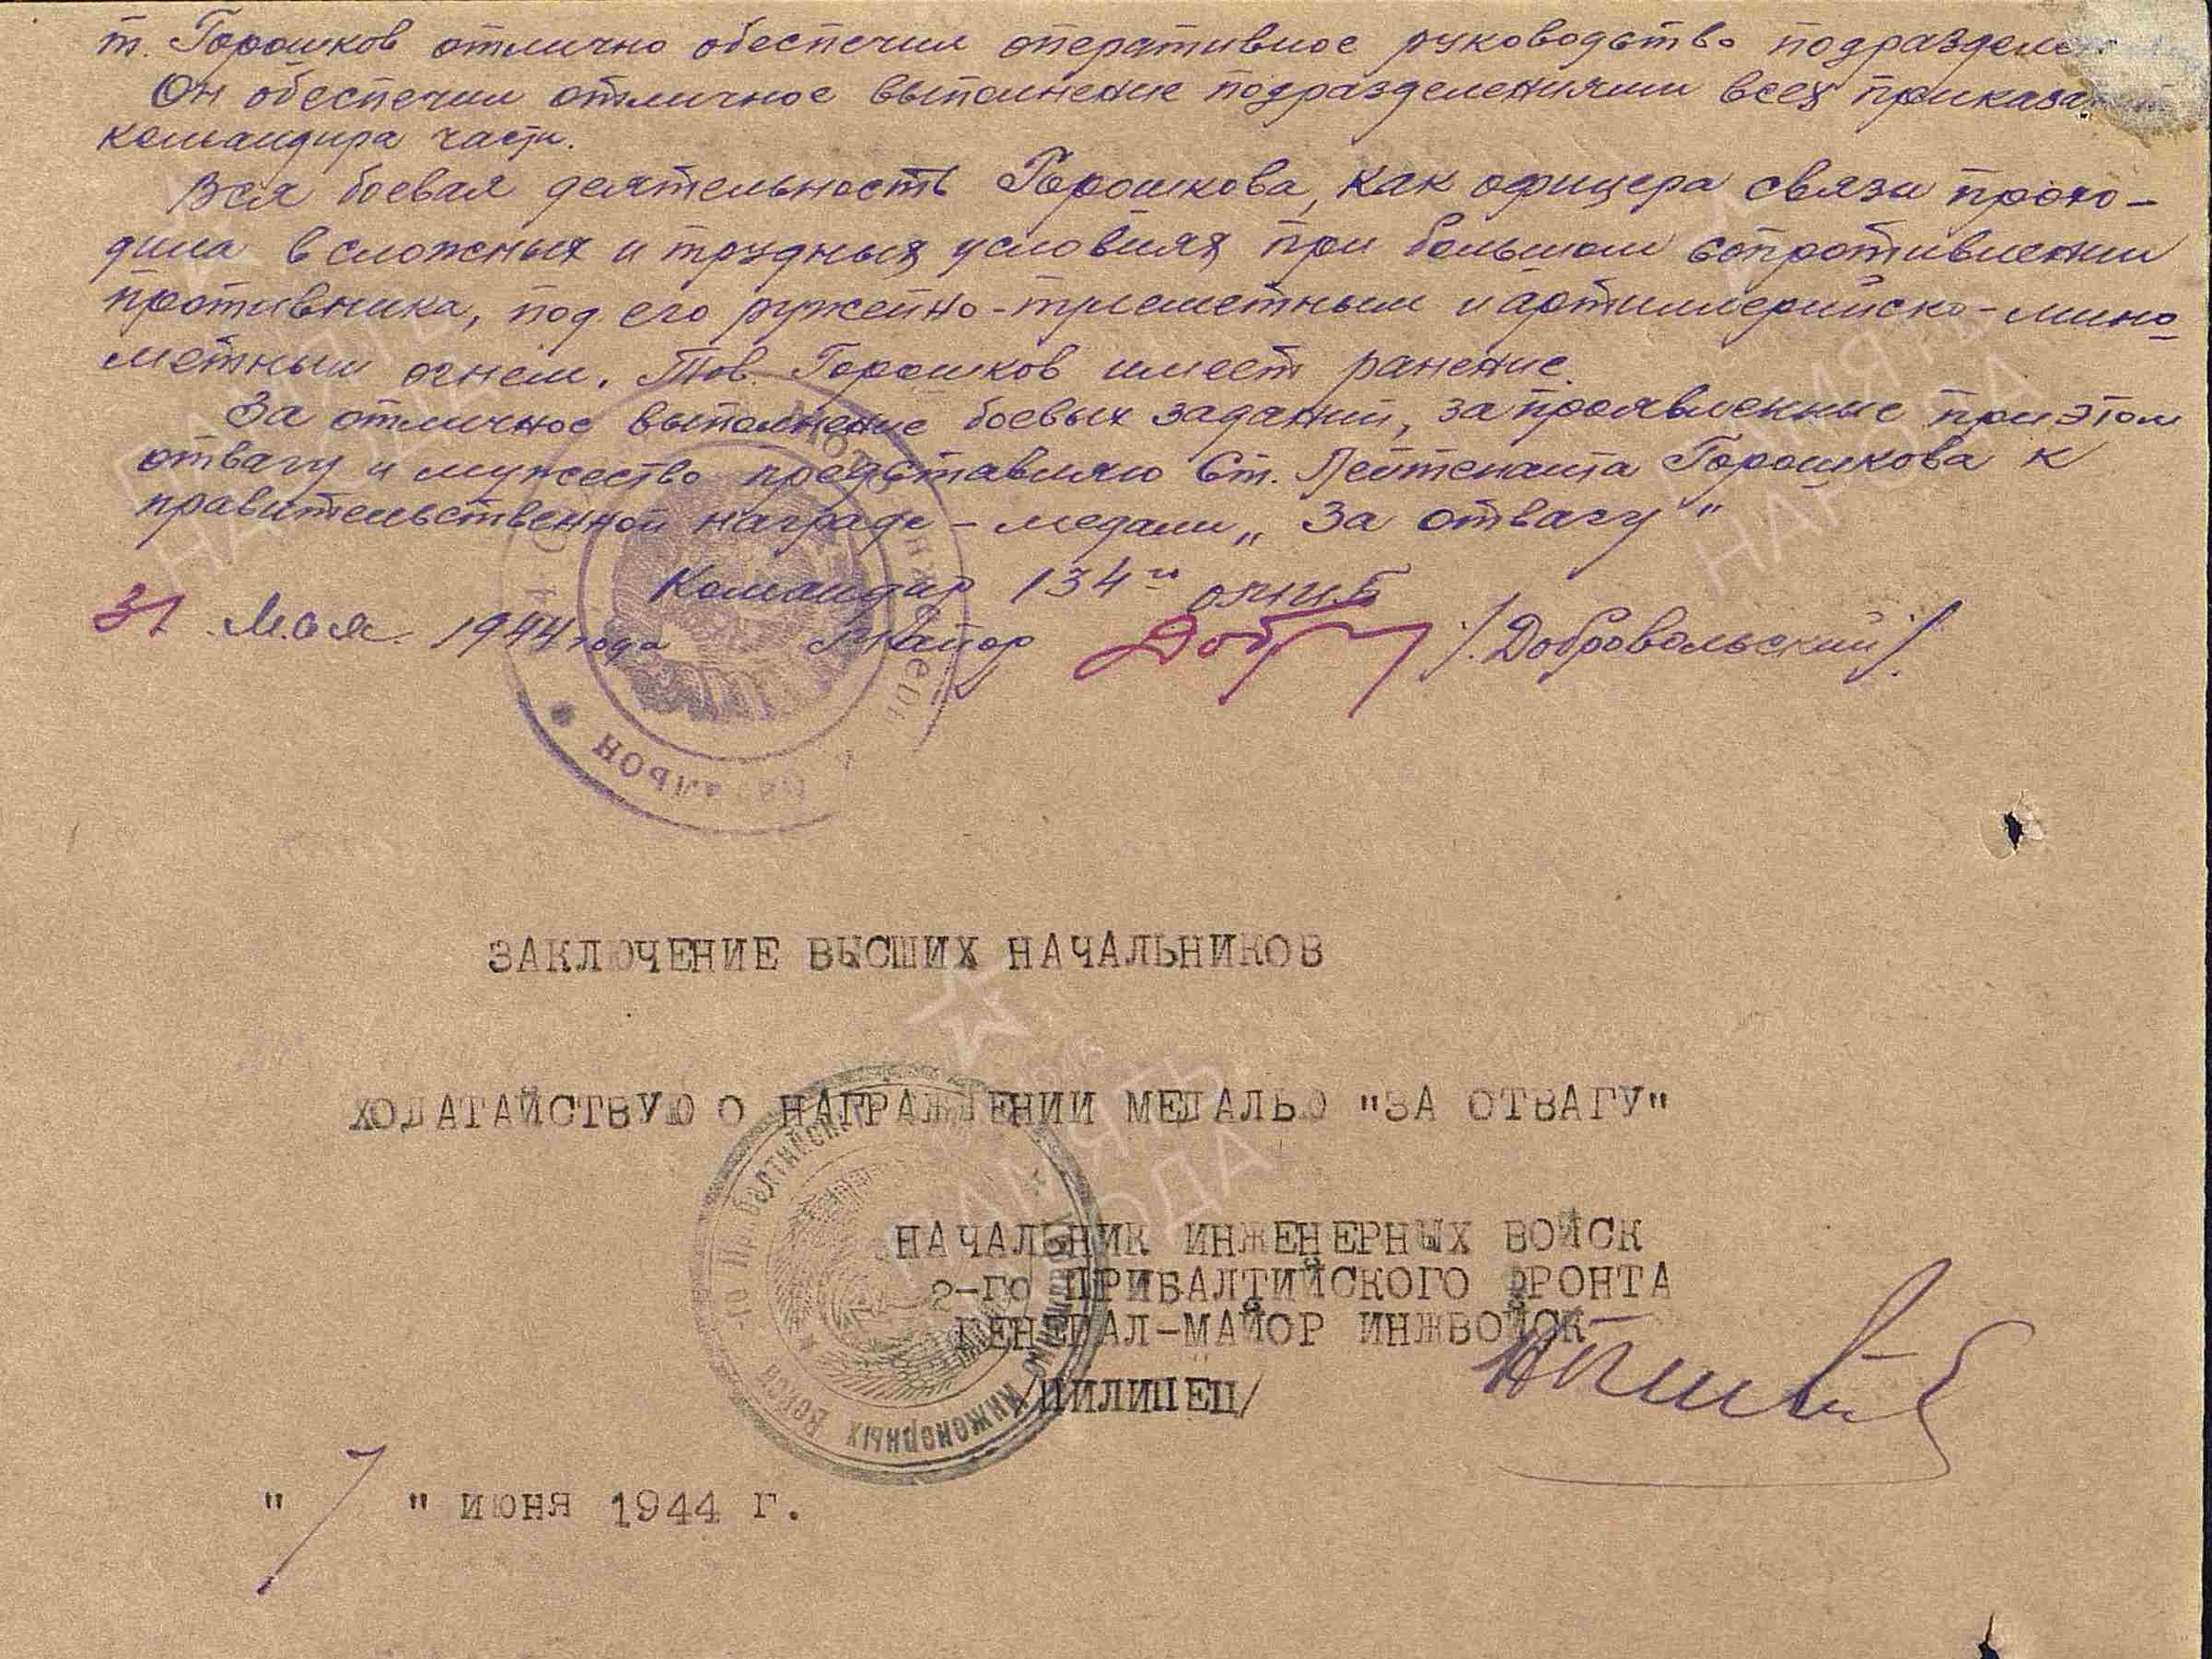 т. Горошков отлично обеспечил оперативное руководство
Он обеспечил отличное выполнение подразделениями всех
командира части.
Вся боевая деятельность Горошкова, как офицера связи прохо-
дила в сложных и трудных условиях при большом сопротивлении
противника, под его ружейно-пулеметным и артиллерийско-мино
метным огнем. Тов. Горошков имеет ранение.
За отличное выполнение боевых заданий, за проявленные при этом
отвагу и мужество представляю Ст. Лейтенанта Горошкова к
правительственной награде - медали „За отвагу"
Командир 134го
31 Мая 1944 года Майор /Добровольский/
БАТАЛЬОН
ЗАКЛЮЧЕНИЕ ВЫСШИХ НАЧАЛЬНИКОВ
ХОДАТАЙСТВУЮ О НАГРАЖДЕНИИ МЕДАЛЬЮ "ЗА ОТВАГУ"
НАЧАЛЬНИК ИНЖЕНЕРНЫХ ВОЙСК
2-ГО ПРИБАЛТИЙСКОГО ФРОНТА
ГЕНЕРАЛ-МАЙОР ИНЖВОЙСК
/ПИЛИПЕЦ/
Управление Инженерных Войск
"7" июня 1944 г.
ПАМЯТЬ
НАРОДА
ПАМЯТЬ
НАРОДА
ПАМЯТЬ
НАРОДА